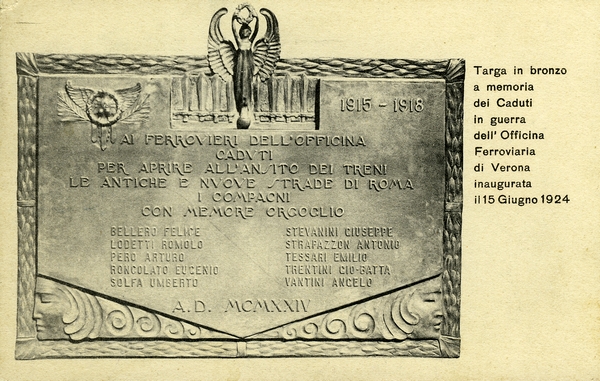 1915 - 1918
AI FERROVIERI DELL'OFFICINA
CADVTI
PER APRIRE ALL'ANSITO DEI TRENI
LE ANTICHE E NVOVE STRADE DI ROMA
I COMPAGNI
CON MEMORE ORGOGLIO
BELLERO FELICE
LODETTI ROMOLO
PERO ARTURO
RONCOLATO EUGENIO
SOLFA UMBERTO
STEVANINI GIUSEPPE
STRAFAZZON ANTONIO
TESSARI EMILIO
TRENTINI GIO-BATTA
VANTINI ANGELO
A.D. MCMXXIV
Targa in bronzo
a memoria
dei Caduti
in guerra
dell'Officina
Ferroviaria
di Verona
inaugurata
il 15 Giugno 1924